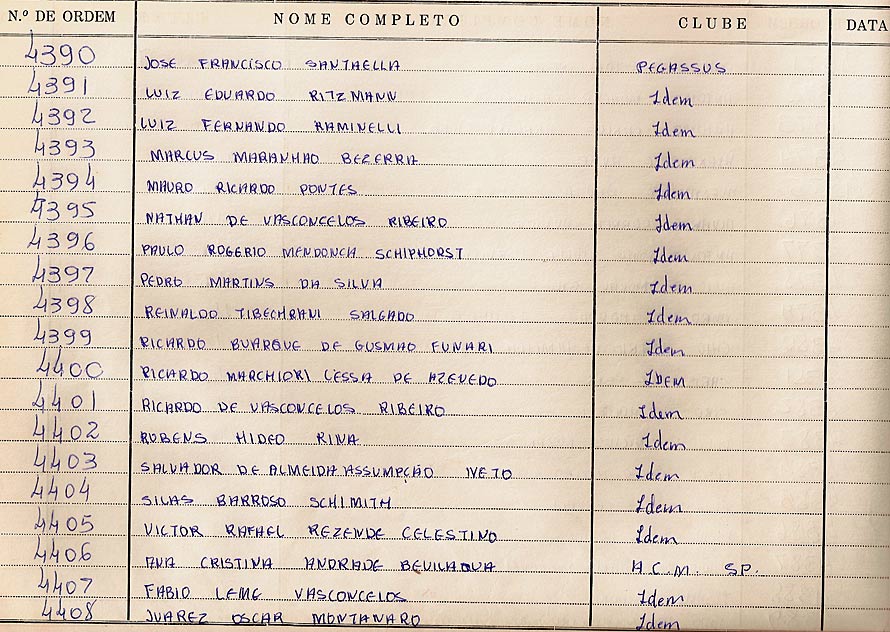 N.º DE ORDEM NOME COMPLETO CLUBE DATA
4390 JOSE FRANCISCO SANTAELLA PEGASSUS
4391 LUIZ EDUARDO RITZMANN Idem
4392 LUIZ FERNANDO RAMINELLI Idem
4393 MARCUS MARANHAO BEZERRA Idem
4394 MAURO RICARDO PONTES Idem
4395 NATHAN DE VASCONCELOS RIBEIRO Idem
4396 PAULO ROGERIO MENDONCA SCHIPHORST Idem
4397 PEDRO MARTINS DA SILVA Idem
4398 REINALDO TIBECHRANI SALGADO Idem
4399 RICARDO BUARQUE DE GUSMAO FUNARI Idem
4400 RICARDO MARCHIORI LESSA DE AZEVEDO IDEM
4401 RICARDO DE VASCONCELOS RIBEIRO Idem
4402 RUBENS HIDEO RINA Idem
4403 SALVADOR DE ALMEIDA ASSUMPÇÃO IVETO Idem
4404 SILAS BARROSO SCHIMITH Idem
4405 VICTOR RAFAEL REZENDE CELESTINO Idem
4406 ANA CRISTINA ANDRADE BEVILAQUA A.C.M. SP.
4407 FABIO LEME VASCONCELOS Idem
4408 JUAREZ OSCAR MONTANARO Idem